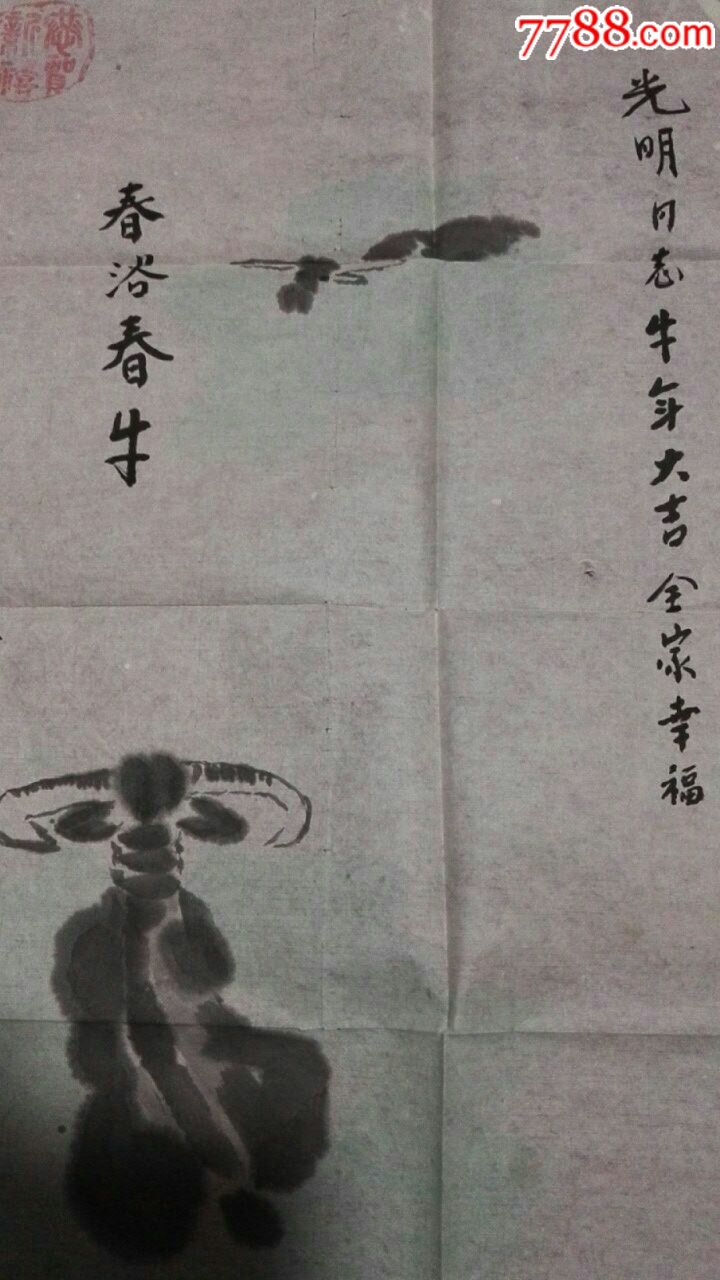 7788.com
光明同志牛年大吉全家幸福
春浴春牛
恭贺新禧